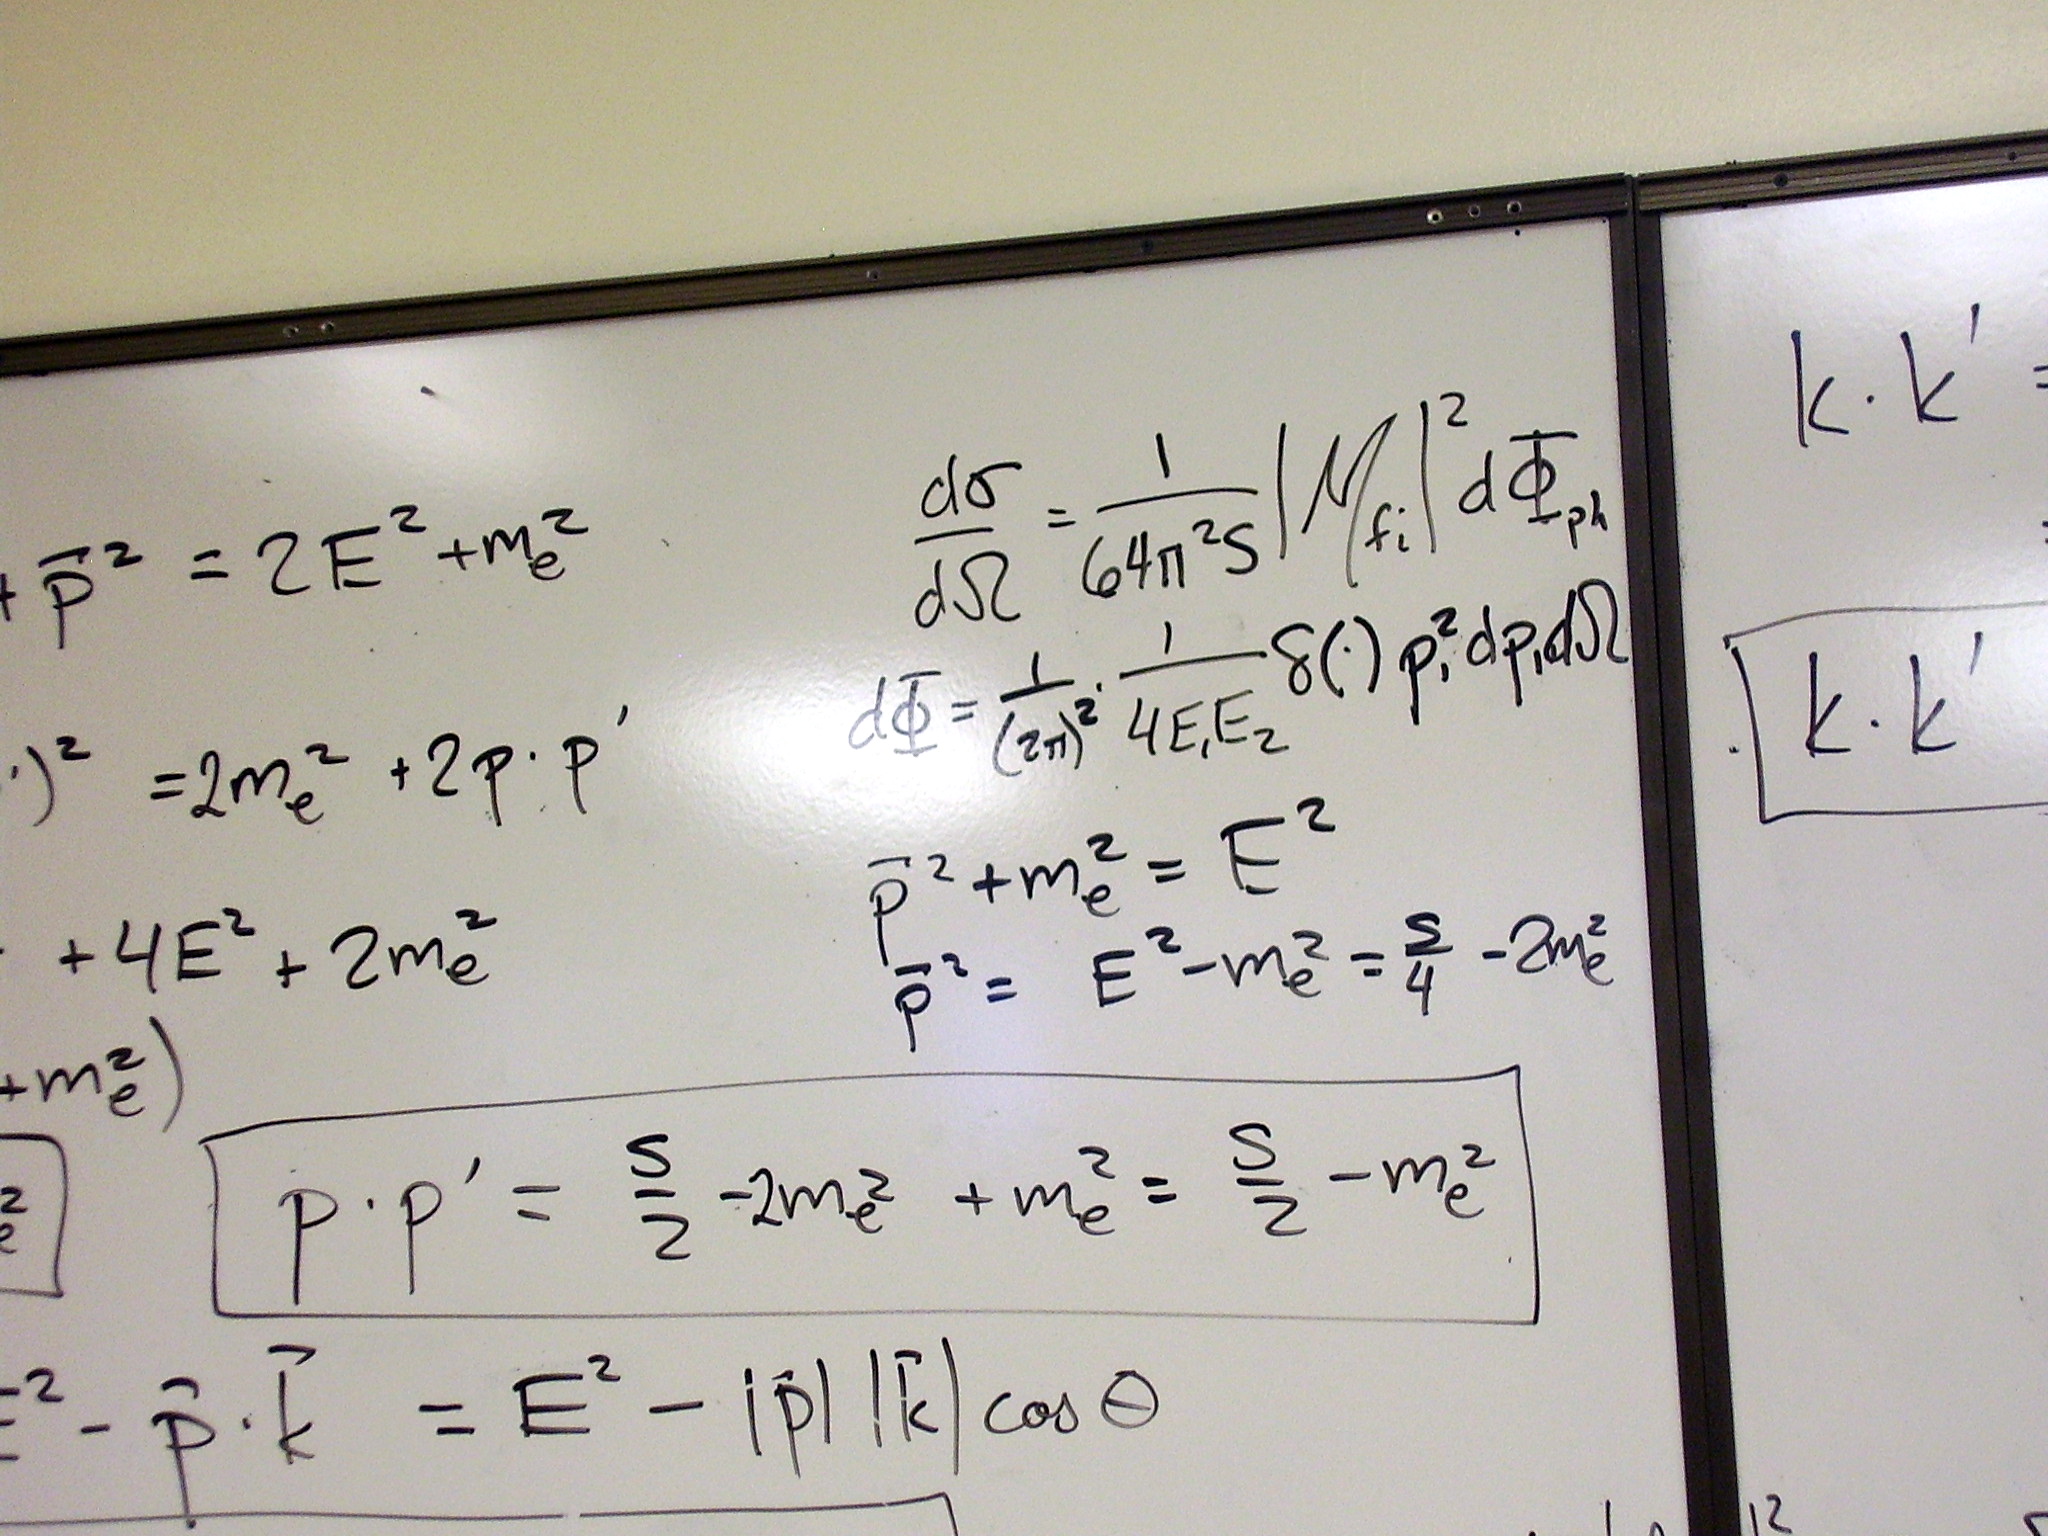 + p̄² = 2E² + mₑ²
·)² = 2mₑ² + 2p·p′
+ 4E² + 2mₑ²
+ mₑ²)
dσ/dΩ = 1/(64π²S) |M_fi|² dΦ_ph
dΦ = 1/(2π)² · 1/(4E₁E₂) δ(·) p₁² dp₁ dΩ
p̄² + mₑ² = E²
p̄² = E² - mₑ² = S/4 - 2mₑ²
p·p′ = S/2 - 2mₑ² + mₑ² = S/2 - mₑ²
E² - p⃗·k⃗ = E² - |p⃗| |k⃗| cos θ
k·k′ =
k·k′